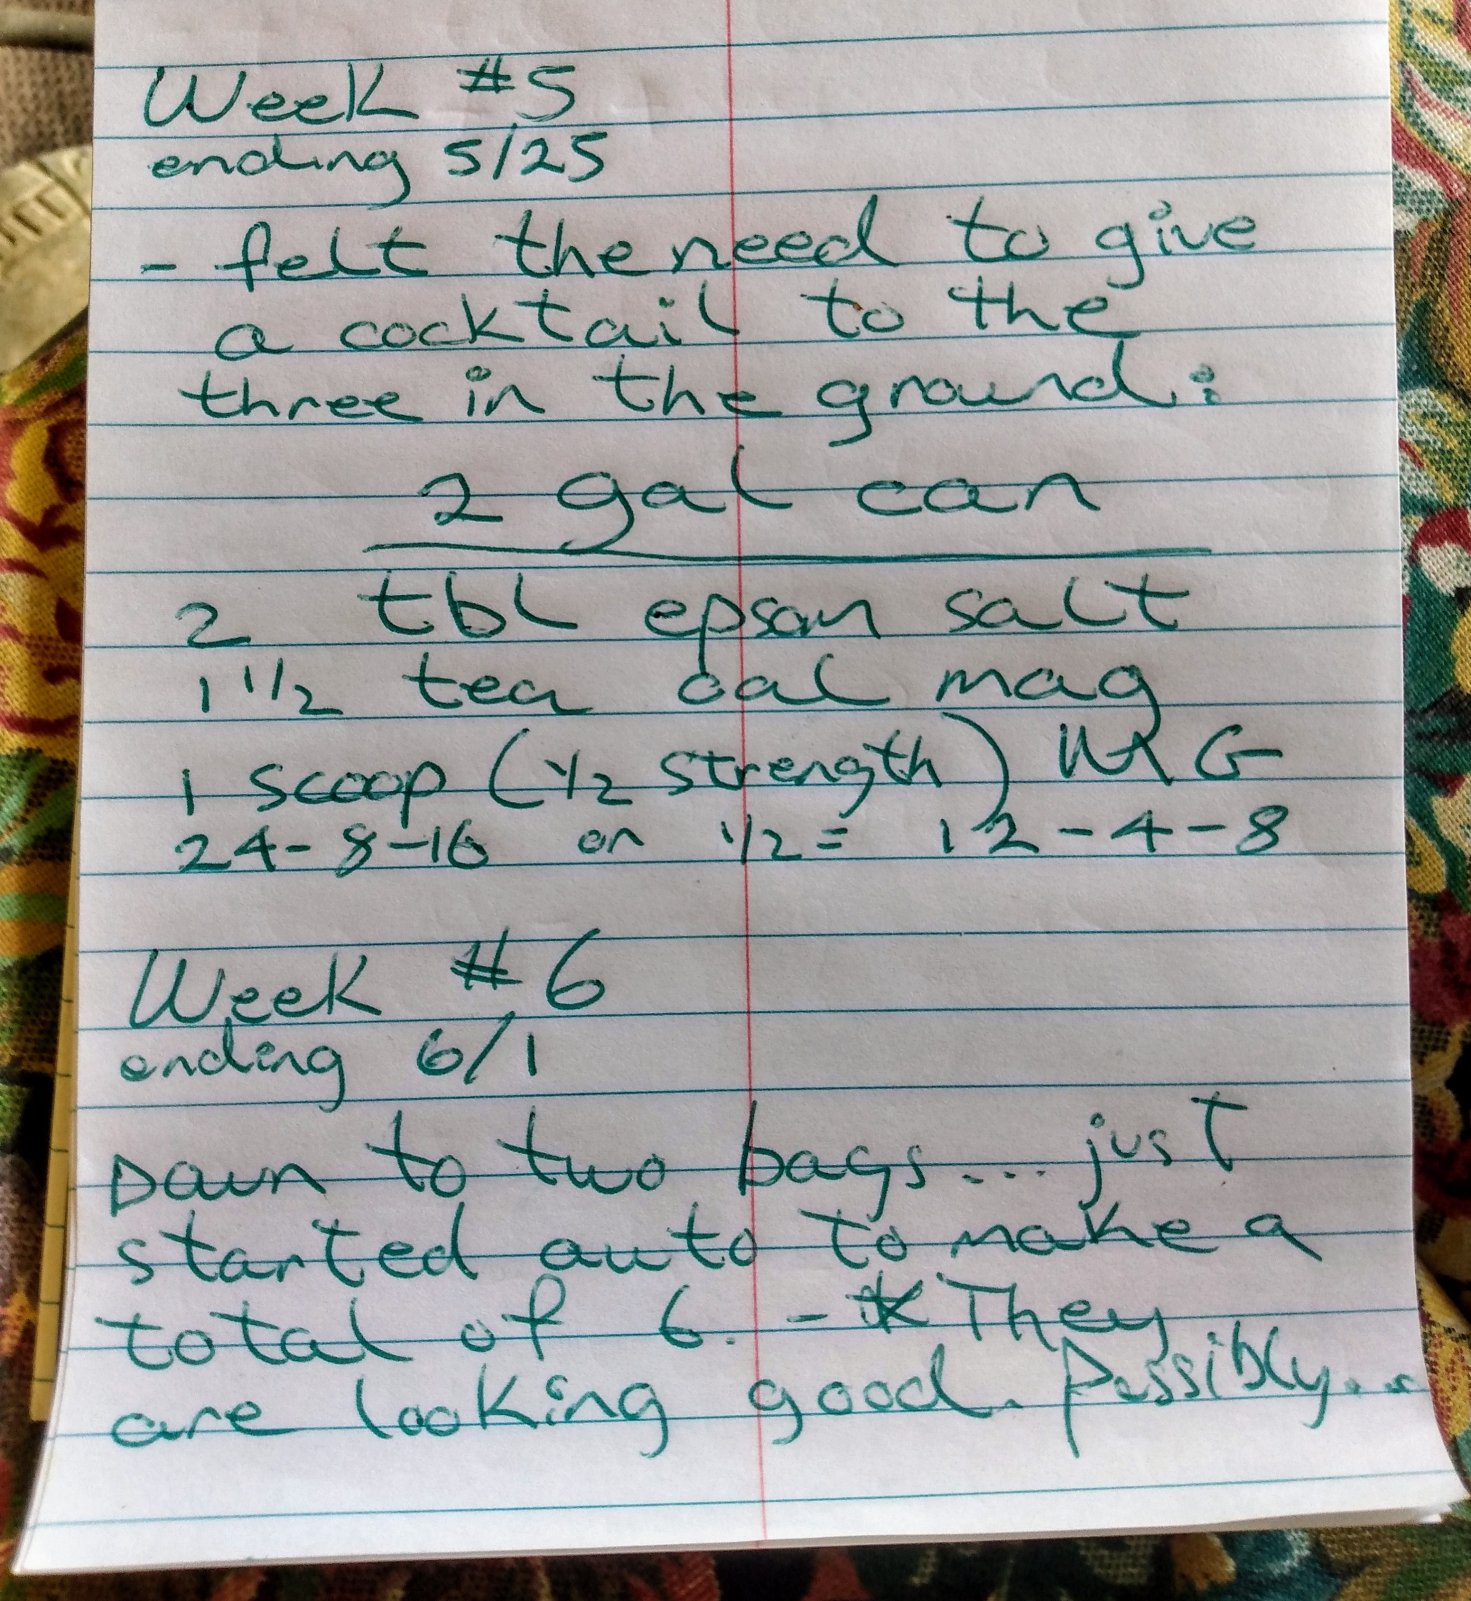 Week #5
ending 5/25
- felt the need to give
a cocktail to the
three in the ground:
2 gal can
2 tbl epsom salt
1 1/2 tea cal mag
1 scoop (1/2 strength) MG
24-8-16 or 1/2 = 12-4-8
Week #6
ending 6/1
Down to two bags... just
started auto to make a
total of 6. - * They
are looking good. Possibly...